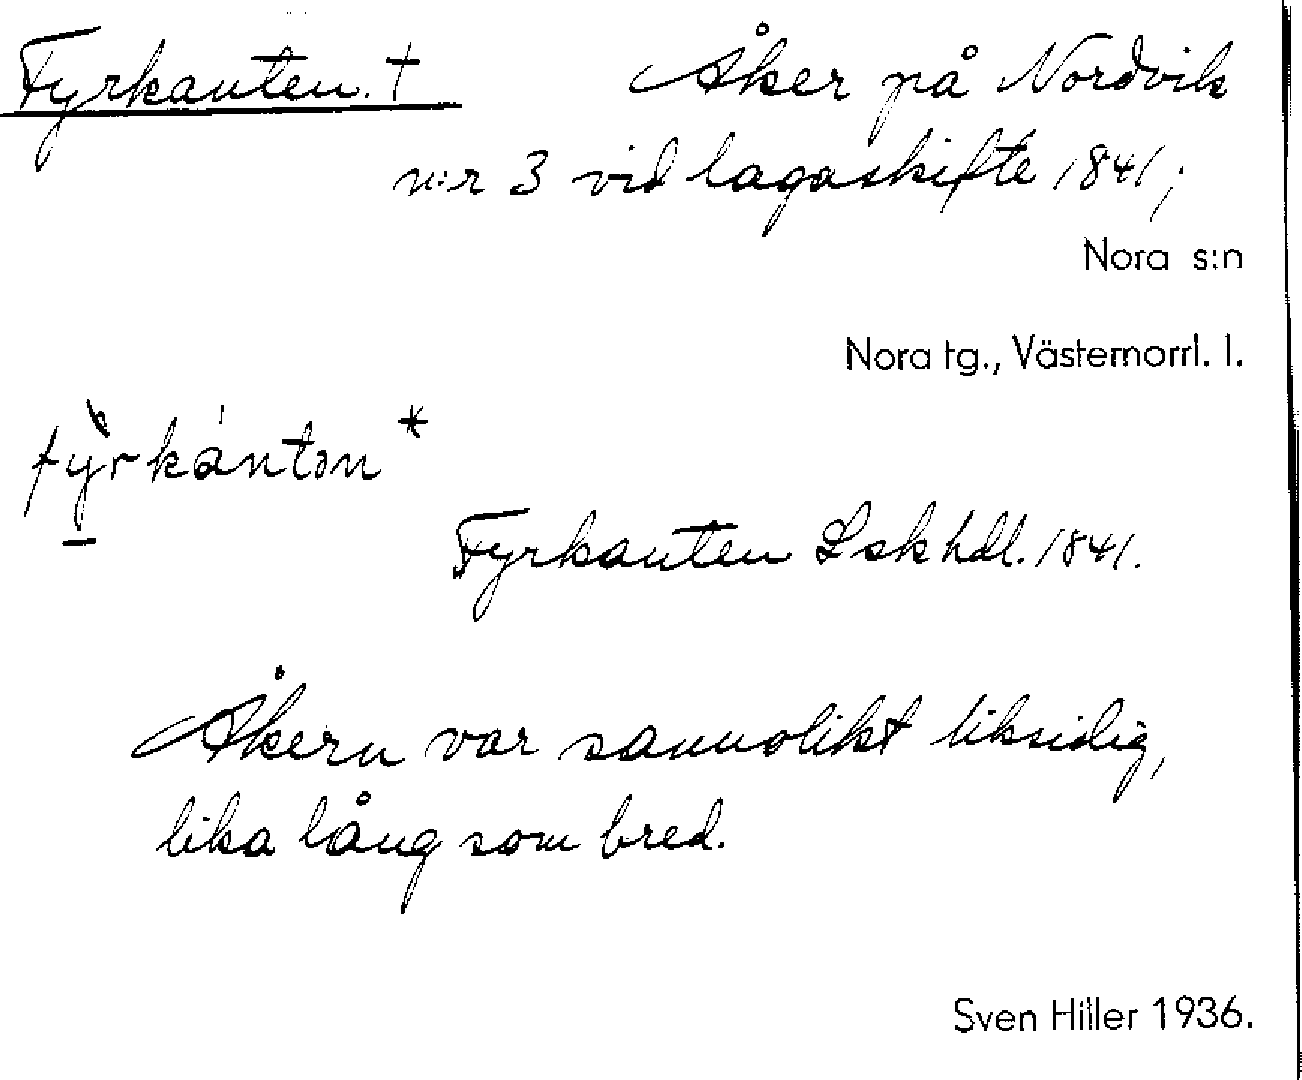 Fyrkanten. † Åker på Nordvik
n:r 3 vid lagaskifte 1841;
Nora s:n
Nora tg., Västernorrl. l.
fỳ̠rkán̍tən *
Fyrkanten Lskhdl. 1841.
Åkern var sannolikt liksidig,
lika lång som bred.
Sven Hiller 1936.